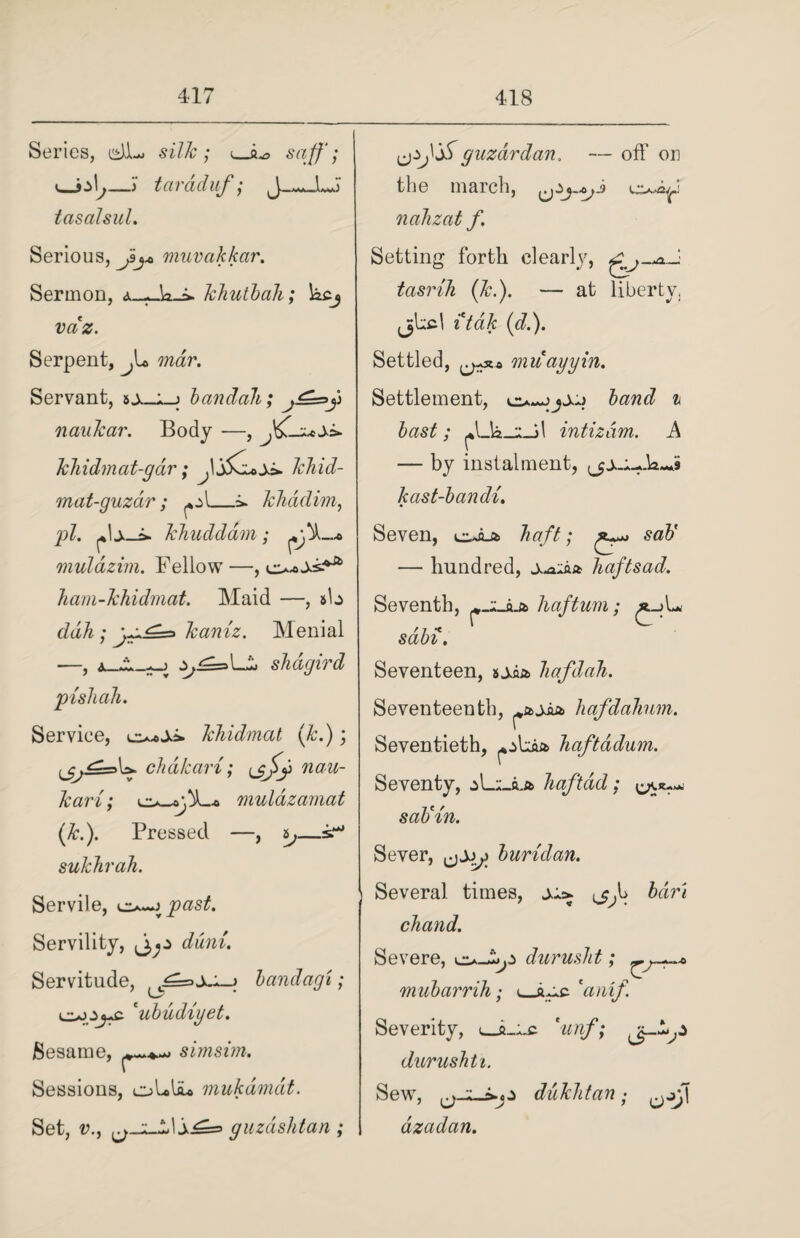 417
418
Series, سلك silk; صف saff';
ترادف taráduf; تسلسل
tasalsul.
Serious, موقر muvakkar.
Sermon, خطبه khutbah; وعظ
va'z.
Serpent, مار már.
Servant, بنده bandah; نوكر
naukar. Body —, خدمتكار
khidmat-gár; خدمتگذار khid-
mat-guzár; خادم khádim,
pl. خدام khuddám; ملازم
mulázim. Fellow —, همخدمت
ham-khidmat. Maid —, داه
dáh; كنيز kaníz. Menial
—, شاكرد پيشه shágird
píshah.
Service, خدمت khidmat (k.);
چاكري chákarí; نوكري nau-
karí; ملازمت mulázamat
(k.). Pressed —, سخره
sukhrah.
Servile, پست past.
Servility, دوني dúní.
Servitude, بندكي bandagí;
عبوديت 'ubúdíyet.
Sesame, سمسم simsim.
Sessions, مقامات mukámát.
Set, v., كذاشتن guzáshtan;
گذاردن guzárdan. — off on
the march, نهضت فرمودن
nahzat f.
Setting forth clearly, تصريح
tasríh (k.). — at liberty,
اعتاق i'ták (d.).
Settled, معين mu'ayyin.
Settlement, بند و بست band u
bast; انتظام intizám. A
— by instalment, قسط بندي
kast-bandí.
Seven, هفت haft; سبع sab'
— hundred, هفتصد haftsad.
Seventh, هفتم haftum; سابع
sábi'.
Seventeen, هفده hafdah.
Seventeenth, هفدهم hafdahum.
Seventieth, هفتادم haftádum.
Seventy, هفتاد haftád; سبعين
sab'ín.
Sever, بريدن burídan.
Several times, باري چند bárí
chand.
Severe, درشت durusht; مبرح
mubarrih; عنيف 'aníf.
Severity, عنف 'unf; درشتي
durushtí.
Sew, دوختن dúkhtan; آزدن
ázadan.